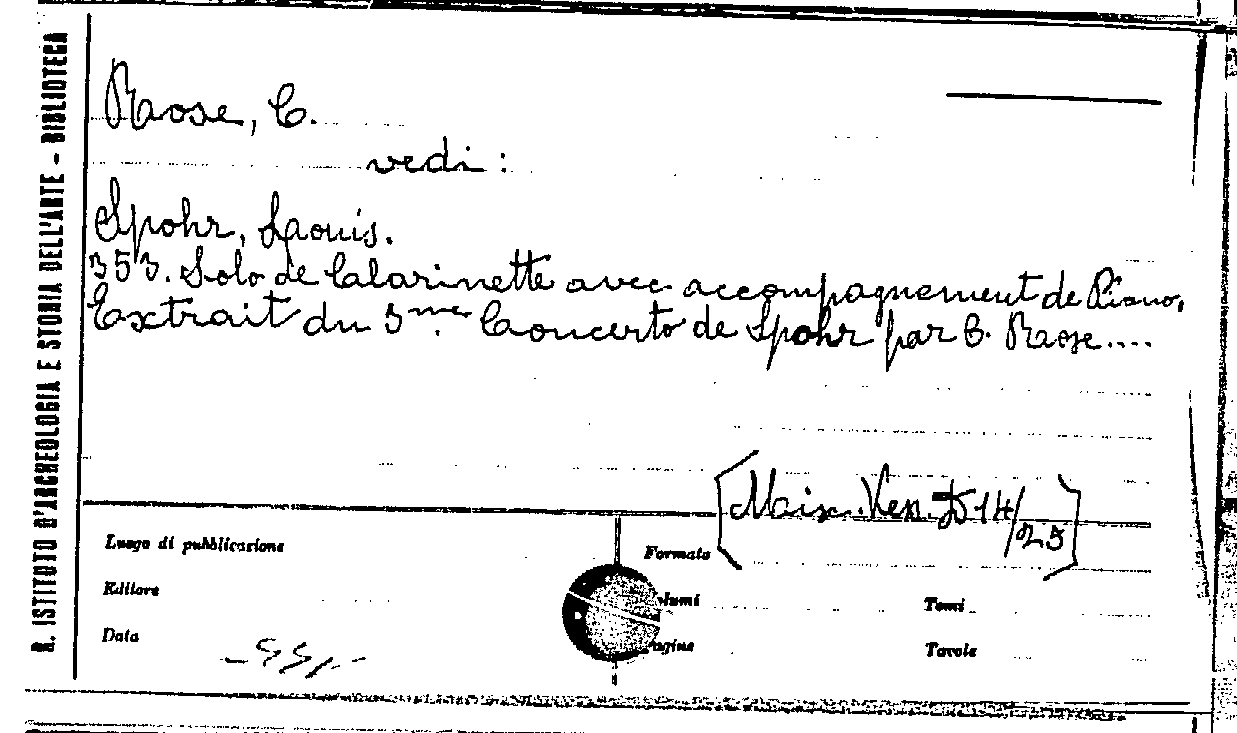 R. ISTITUTO D'ARCHEOLOGIA E STORIA DELL'ARTE - BIBLIOTECA
Raose, C.
vedi:
Spohr, Louis.
353. Solo de Clarinette avec accompagnement de Piano,
Extrait du 3me. Concerto de Spohr par C. Raose....
[Mss. Ven. D 14/25]
Luogo di pubblicazione
Formato
Editore
lumi
Tomi
Data
agine
Tavole